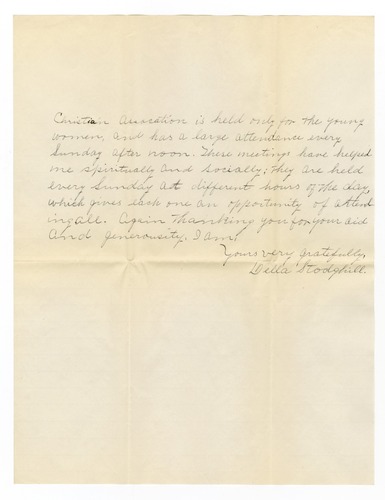 Christian Association is held only for the young
women, and has a large attendance every
Sunday after noon. These meetings have helped
me spiritually and socially, they are held
every Sunday at different hours of the day,
which gives each one an opportunity of attend
ing all. Again thanking you for your aid
and generousity, I am,
Yours very gratefully,
Della Stodghill.